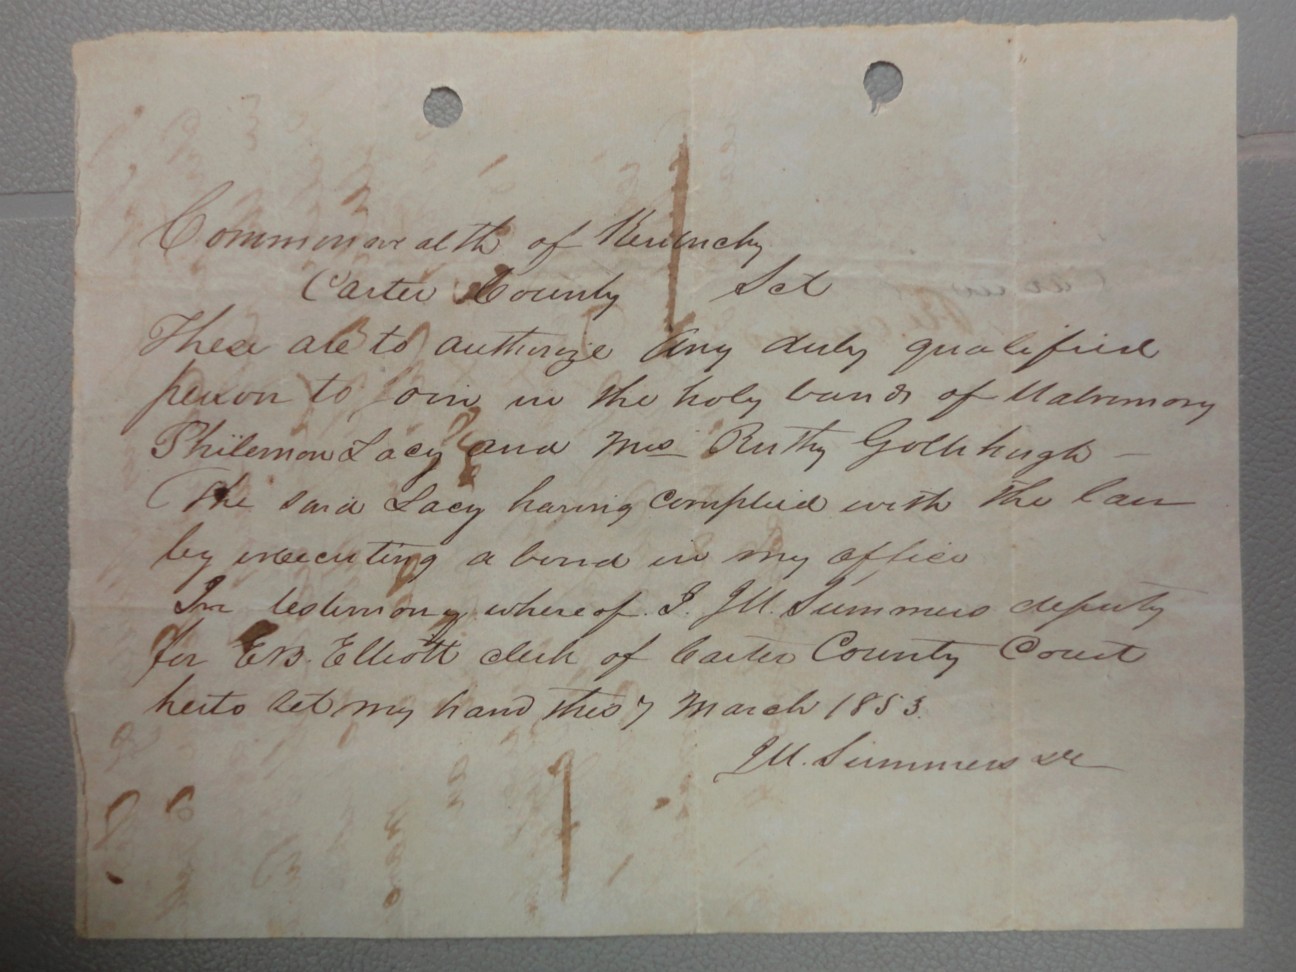 Commonwealth of Kentucky
Carter County Sct
These are to authorize any duly qualified
person to join in the holy bands of Matrimony
Philemon Lacy and Mrs Ruthy Goldhugh –
The said Lacy having complied with the law
by executing a bond in my office
In testimony whereof I. J.M. Summers deputy
for E.B. Elliott clerk of Carter County Court
herto set my hand this 7 March 1853.
J.M. Summers